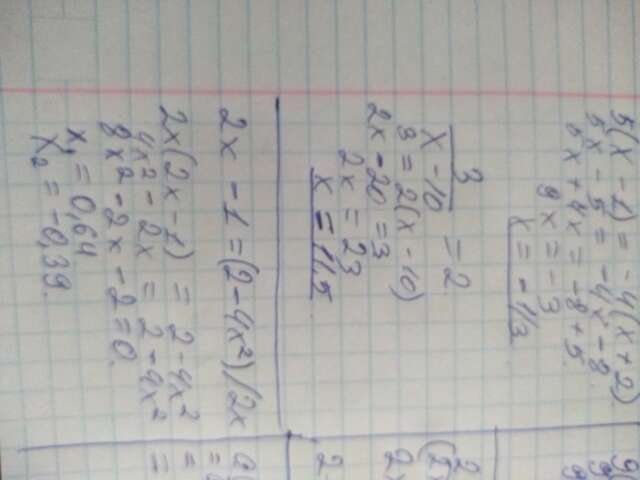 5(x - 1) = -4(x + 2)
5x - 5 = -4x - 8
5x + 4x = -8 + 5
9x = -3
x = -1/3
3
x - 10 = 2
3 = 2(x - 10)
2x - 20 = 3
2x = 23
x = 11,5
2x - 1 = (2 - 4x²)/2x
2x(2x - 1) = 2 - 4x²
4x² - 2x = 2 - 4x²
8x² - 2x - 2 = 0.
x₁ = 0,64
x₂ = -0,39.